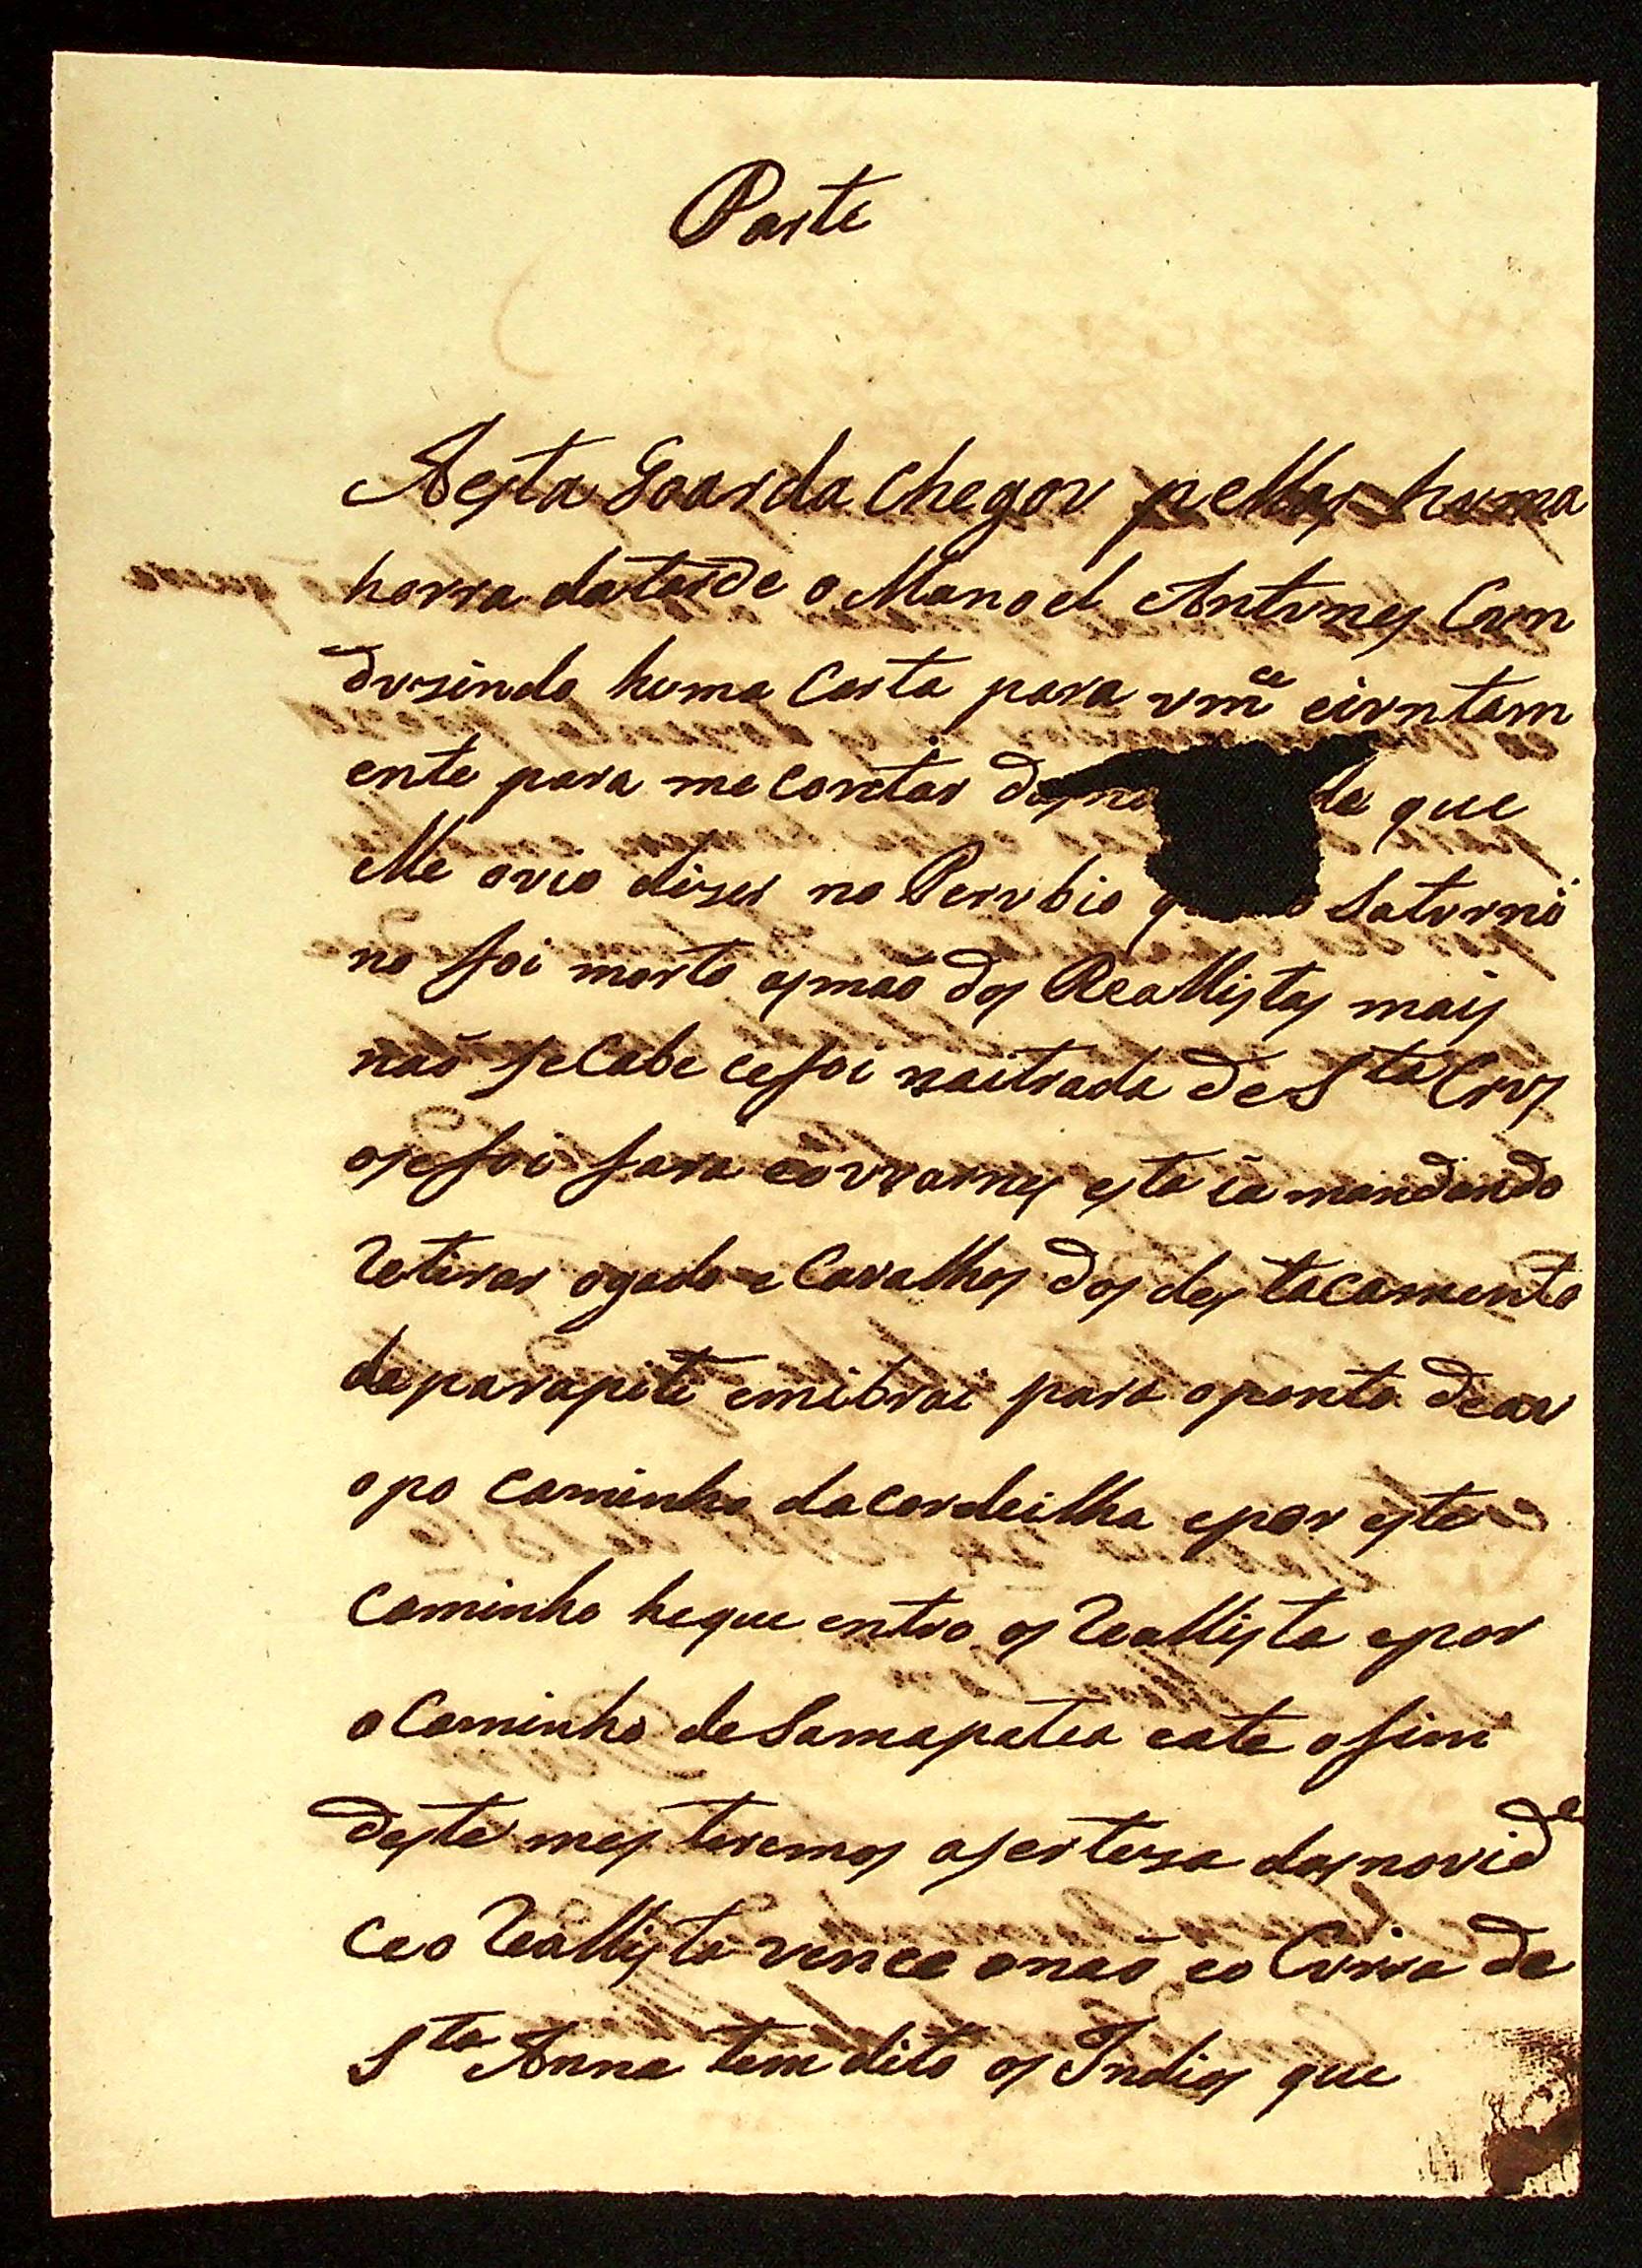 Parte
Aesta Goarda Chegou pellas huma
horra datarde o Manoel Antunes Coun
dusindo huma Carta para vmce eiuntam
ente para me Contar das no de que
elle ovio dizer no Perubio que o Saturni
no foi morto asmaõ dos Reallistas mais
naõ seCabe cefoi naitrada de Sta Crus
osefoi fara esta ia mandando
Retirar ogado e Cavalhos dos destacamento
de parapiti emibrai para oponto deau
opo Caminho dacordeilha epor este
Caminho heque entro os Reallista epor
o Caminho de Samapatea eate ofim
deste mes teremos aserteza das novide
Ceo Reallista vence onaõ eo Curra de
Sta Anna tem dito os Indios que